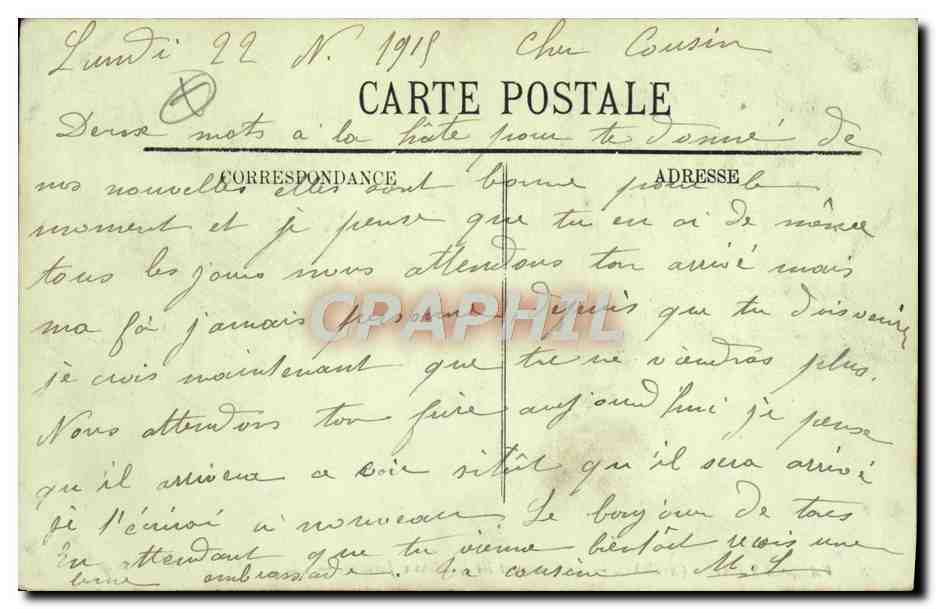 Lundi 22 N. 1915 Cher Cousin
CARTE POSTALE
Deux mots a la hâte pour te donné de
CORRESPONDANCE ADRESSE
nos nouvelles elles sont bonne pour le
moment et je pense que tu en ai de même
tous les jours nous attendons ton arrivé mais
ma foi jamais personne depuis que tu dois venir
je crois maintenant que tu ne viendras plus.
Nous attendons ton frère aujourd'hui je pense
qu'il arrivera ce soir sitôt qu'il sera arrivé
je t'écrirai a nouveau Le bonjour de tous
En attendant que tu vienne bientôt reçois une
bonne embrassade. Ta cousine M. L
CPAPHIL